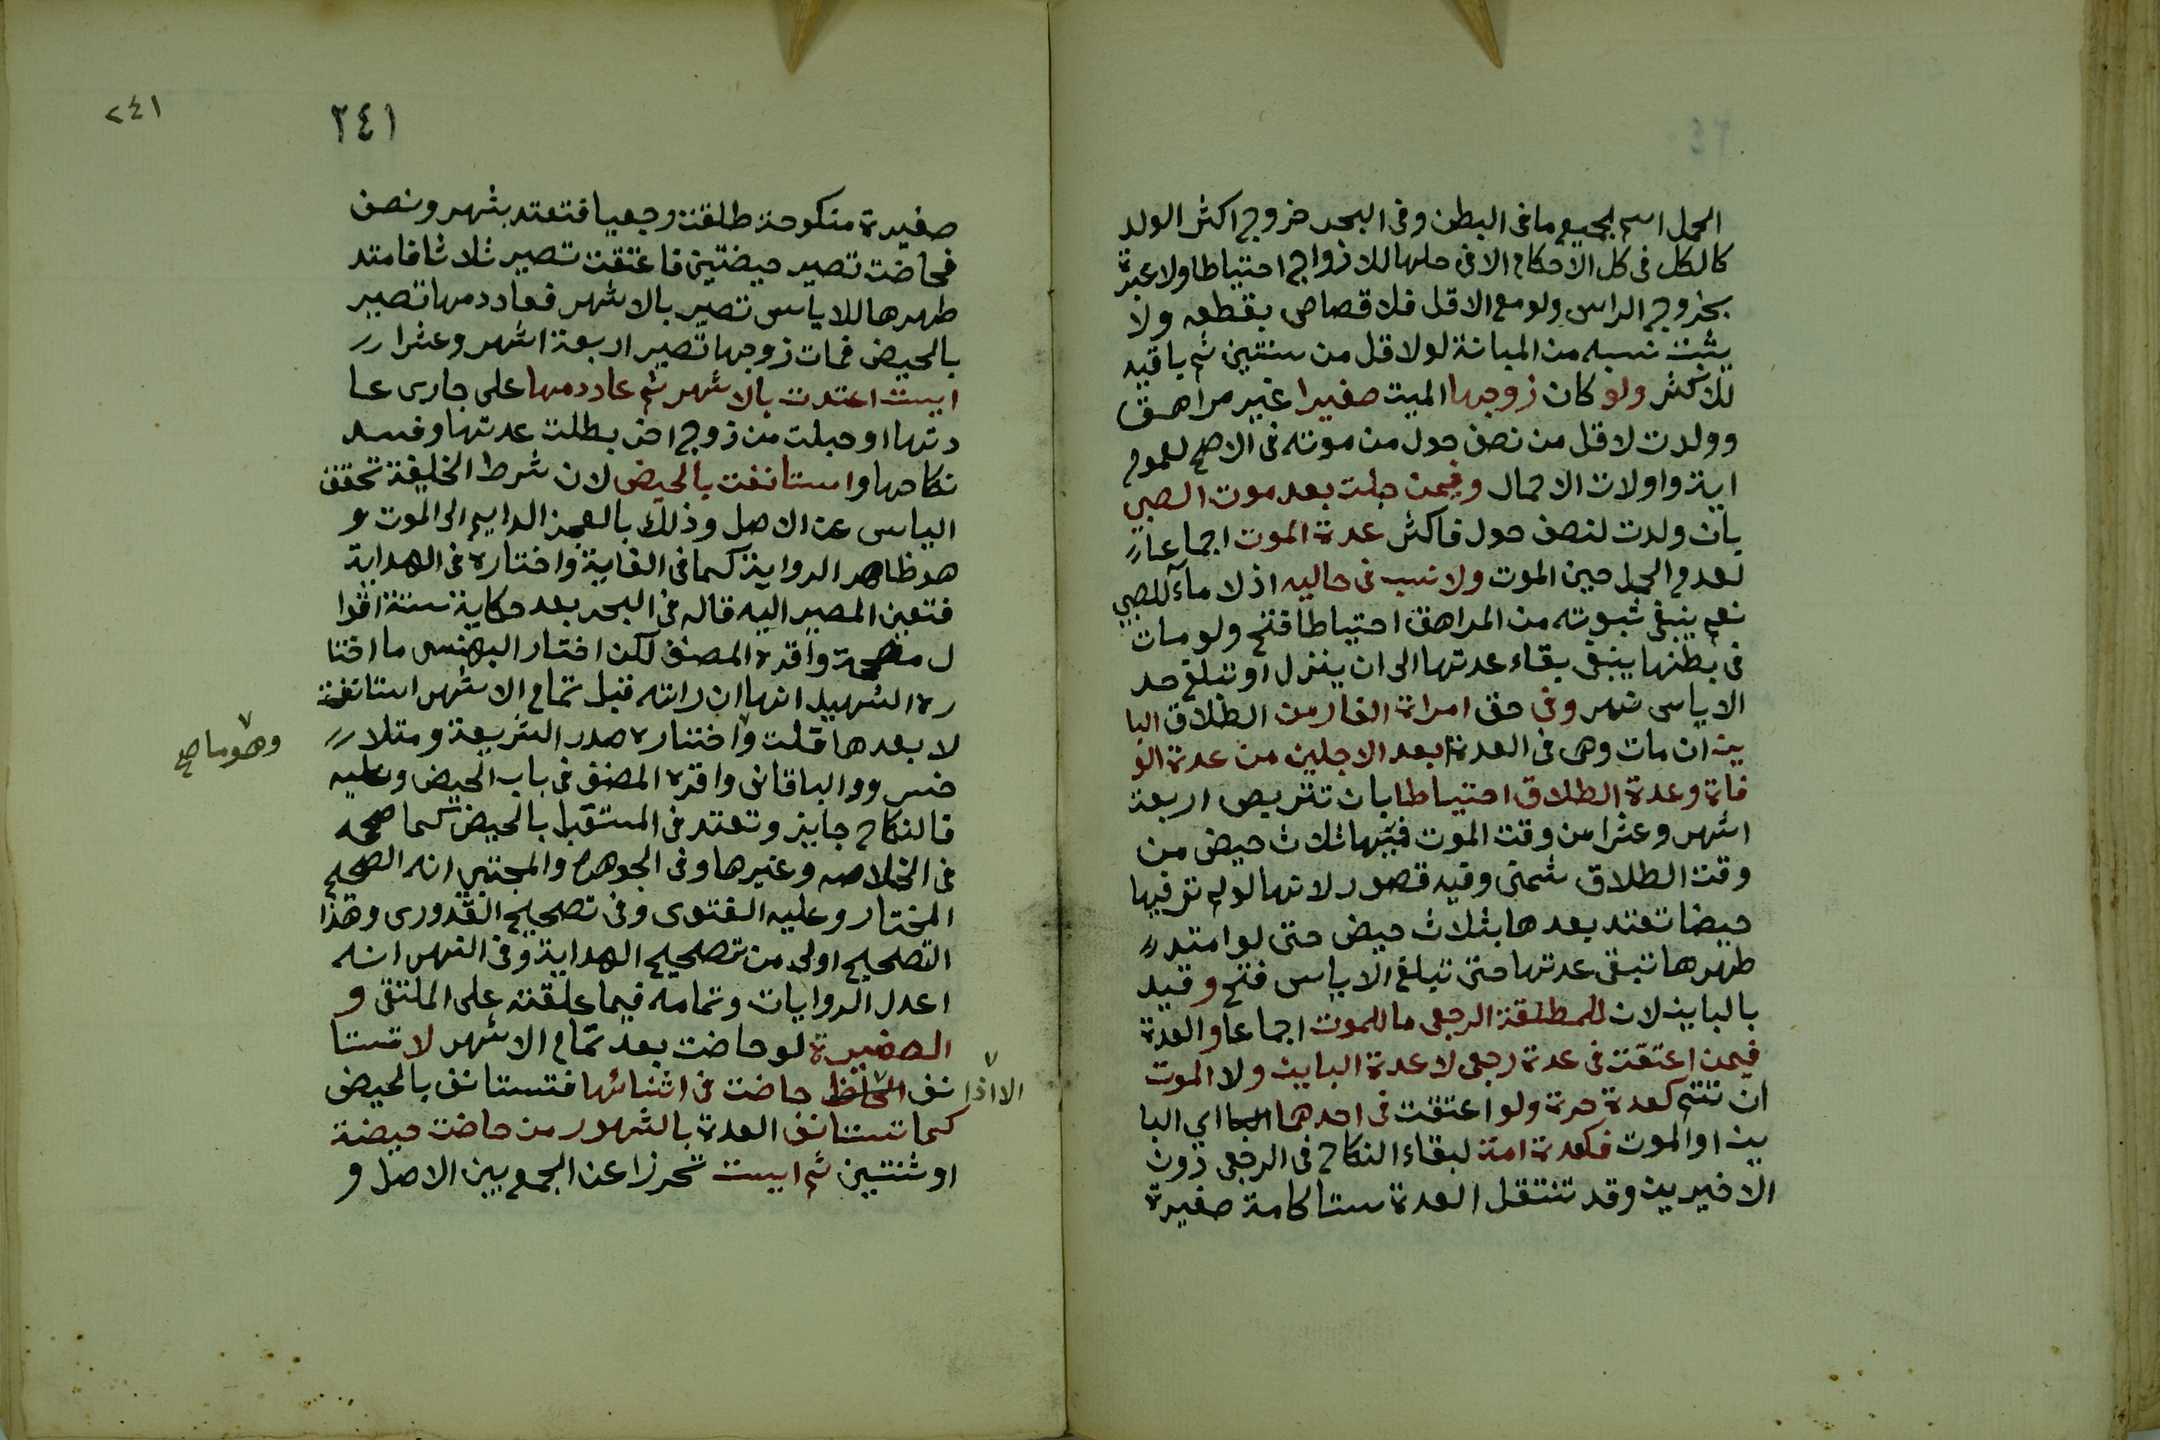 الحمل اسم لجميع ما فى البطن وفى البحر خروج اكثر الولد
كالكل فى كل الاحكام الا فى حلها للازواج احتياطا ولا عبرة
بخروج الراس ولو مع الاقل فلا قصاص بقطعه ولا
يثبت نسبه من المبانة لو لاقل من سنتين ثم باقيه
للاكثر ولو كان زوجها الميت صغيرا غير مراهق
وولدت لاقل من نصف حول من موته فى الاصح لعموم
اية واولات الاحمال وفيمن حبلت بعد موت الصبي
بان ولدت لنصف حول فاكثر عدة الموت اجماعا
لعدم الحمل حين الموت ولا نسب فى حاليه اذ لا ماء للصبي
نعم ينبغى ثبوته من المراهق احتياطا فتح ولو مات
فى بطنها ينبغى بقاء عدتها الى ان ينزل او تبلغ حد
الاياس نهر وفى حق امراة الفار من الطلاق البا
ين ان مات وهى فى العدة ابعد الاجلين من عدة الو
فاة وعدة الطلاق احتياطا بان تتربص اربعة
اشهر وعشرا من وقت الموت فيها ثلاث حيض من
وقت الطلاق شمنى وفيه قصور لانها لو لم تر فيها
حيضا تعتد بعدها بثلاث حيض حتى لو امتد
طهرها تبقى عدتها حتى تبلغ الاياس فتح وقيد
بالباين لان للمطلقة الرجعى ما للموت اجماعا والعدة
فيمن اعتقت فى عدة رجعى لا عدة الباين ولا الموت
ان تتم كعدة حرة ولو اعتقت فى احدهما اي البا
ين او الموت فكعدة امة لبقاء النكاح فى الرجعى دون
الاخيرين وقد تنتقل العدة ستا كامة صغيرة
٢٤١
٢٤١
صغيرة منكوحة طلقت رجعيا فتعتد بشهر ونصف
فحاضت تصير حيضتين فاعتقت تصير ثلاثا فامتد
طهرها للاياس تصير بالاشهر فعاد دمها تصير
بالحيض فمات زوجها تصير اربعة اشهر وعشرا
ايست اعتدت بالاشهر ثم عاد دمها على جارى عا
دتها او حبلت من زوج اخر بطلت عدتها وفسد
نكاحها واستانفت بالحيض لان شرط الخليفة تحقق
الياس عن الاصل وذلك بالعجز الدايم الى الموت و
هو ظاهر الرواية كما فى الغاية واختاره فى الهداية
فتعين المصير اليه قاله فى البحر بعد حكاية ستة اقوا
ل مصححة واقره المصنف لكن اختار البهنسى ما اختا
ره الشهيد انها ان راته قبل تمام الاشهر استانفت
لا بعدها قلت واختاره صدر الشريعة ومتلا
خسرو والباقانى واقره المصنف فى باب الحيض وعليه
فالنكاح جايز وتعتد فى المستقبل بالحيض كما صححه
وهو ما صح
فى الخلاصه وغيرها وفى الجوهرة والمجتبى انه الصحيح
المختار وعليه الفتوى وفى تصحيح القدورى وهذا
التصحيح اولى من تصحيح الهداية وفى النهر انه
اعدل الروايات وتمامه فيما علقته على الملتقى و
الصغيرة لو حاضت بعد تمام الاشهر لا تستا
نف الا اذا حاضت فى اثنائها فتستانف بالحيض
كما تستانف العدة بالشهور من حاضت حيضة
او ثنتين ثم ايست تحرزا عن الجمع بين الاصل و